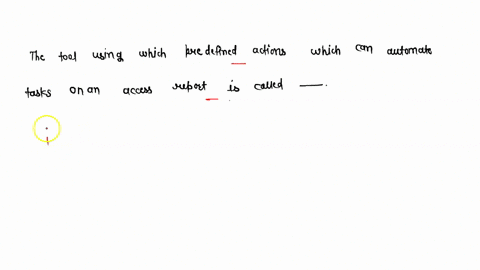 The tool using which predefined actions which can automate
tasks on an access report is called —.